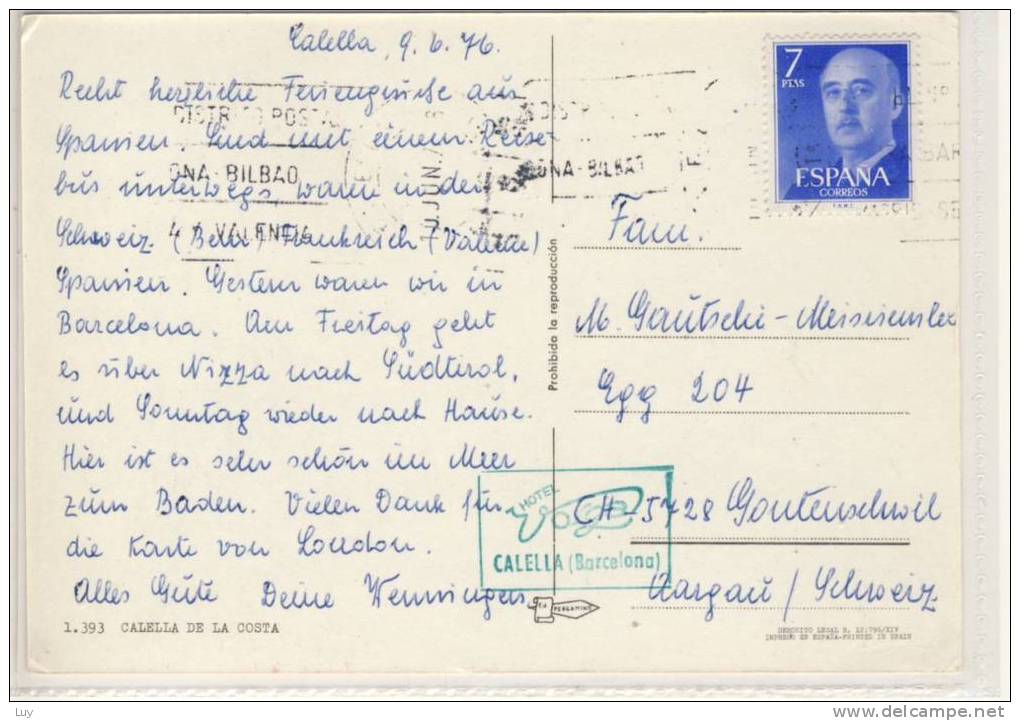 Calella, 9.6.76.
Recht herzliche Feriengrüsse aus
Spanien. Sind mit einem Reise-
bus unterwegs, waren in der
Schweiz (Bern) Frankreich (Valence)
Spanien. Gestern waren wir in
Barcelona. Am Freitag geht
es über Nizza nach Südtirol,
und Sonntag wieder nach Hause.
Hier ist es sehr schön im Meer
zum Baden. Vielen Dank für
die Karte von London.
Alles Gute Deine Wenningers
1.393 CALELLA DE LA COSTA
DISTRITO POSTAL
ONA-BILBAO
VALENCIA
JUN.
ONA-BILBAO
Prohibida la reproducción
7
PTAS
ESPAÑA
CORREOS
Fam.
M. Gautschi-
Egg 204
CH-5728 Gontenschwil
Aargau / Schweiz
HOTEL
CALELLA (Barcelona)
PERGAMINO
DEPOSITO LEGAL B.
IMPRESO EN ESPAÑA-PRINTED IN SPAIN
Luy
www.delcampe.net